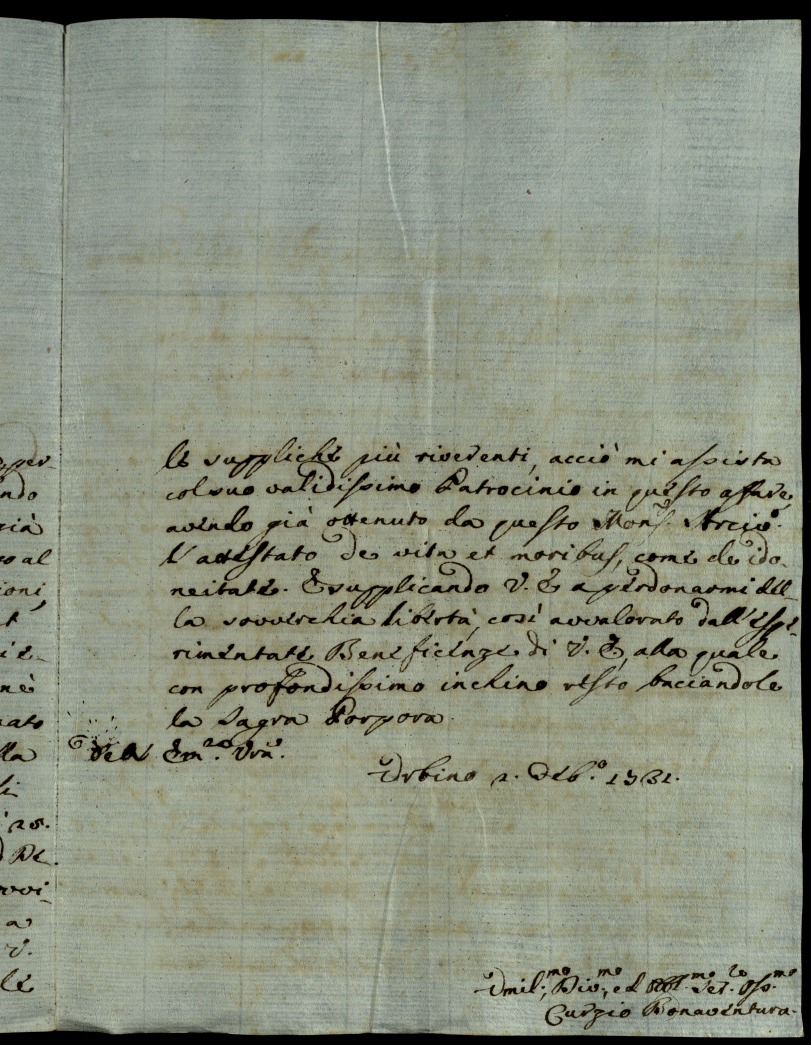 le suppliche più riverenti, acciò mi assista
col suo validissimo Patrocinio in questo affare,
avendo già ottenuto da questo Mons.r Arciv.o
l'attestato de vita et moribus, come de ido-
neitate. E supplicando V. E. a perdonarmi del-
la soverchia libertà, così avvalorato dall'espe-
rimentate Beneficenze di V. E, alla quale
con profondissimo inchino resto baciandole
la Sagra Porpora.
Dell' Em.za Vrã.
Urbino 2. Feb.o 1731.
Umil.mo, Div.mo, ed Obl.mo Ser.re Oss.mo
Curzio Bonaventura.
per-
ndo
già
so al
ioni,
et
nè
uato
lla
di
a
V.
le